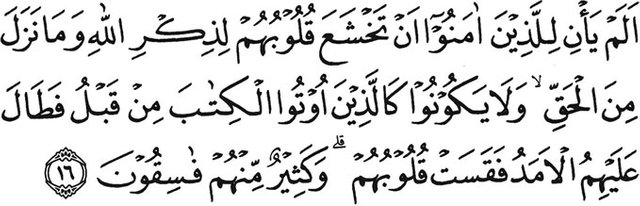 اَلَمْ يَأْنِ لِلَّذِيْنَ اٰمَنُوْٓا اَنْ تَخْشَعَ قُلُوْبُهُمْ لِذِكْرِ اللّٰهِ وَمَا نَزَلَ
مِنَ الْحَقِّۙ وَلَا يَكُوْنُوْا كَالَّذِيْنَ اُوْتُوا الْكِتٰبَ مِنْ قَبْلُ فَطَالَ
عَلَيْهِمُ الْاَمَدُ فَقَسَتْ قُلُوْبُهُمْۗ وَكَثِيْرٌ مِّنْهُمْ فٰسِقُوْنَ ١٦